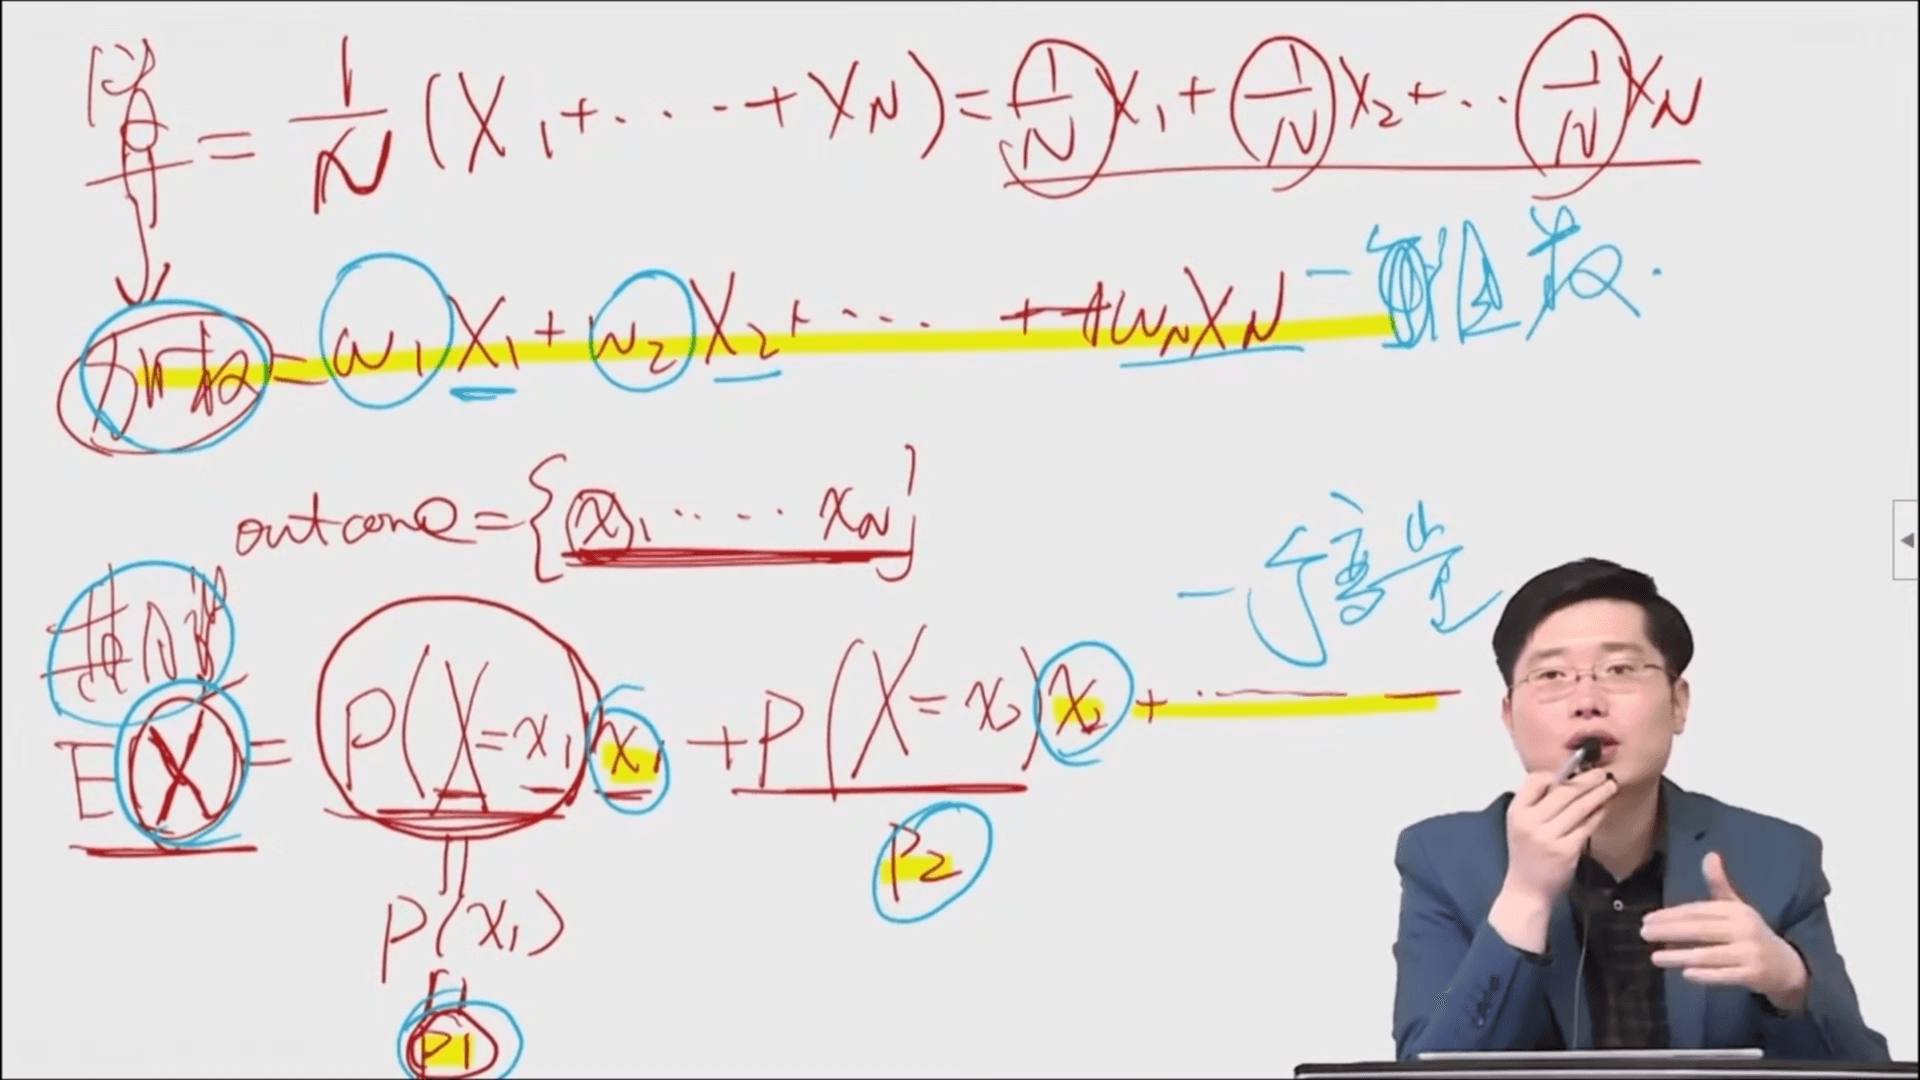 算 = 1/N (X₁ + ··· + X_N) = 1/N X₁ + 1/N X₂ + ·· 1/N X_N
加权 = w₁X₁ + w₂X₂ + ···· + w_N X_N
outcome = {x₁ ····· x_N}
期望
一个变量
E X = P(X = x₁) x₁ + P(X = x₂) x₂ + ·
P(x₁)
P2
P1